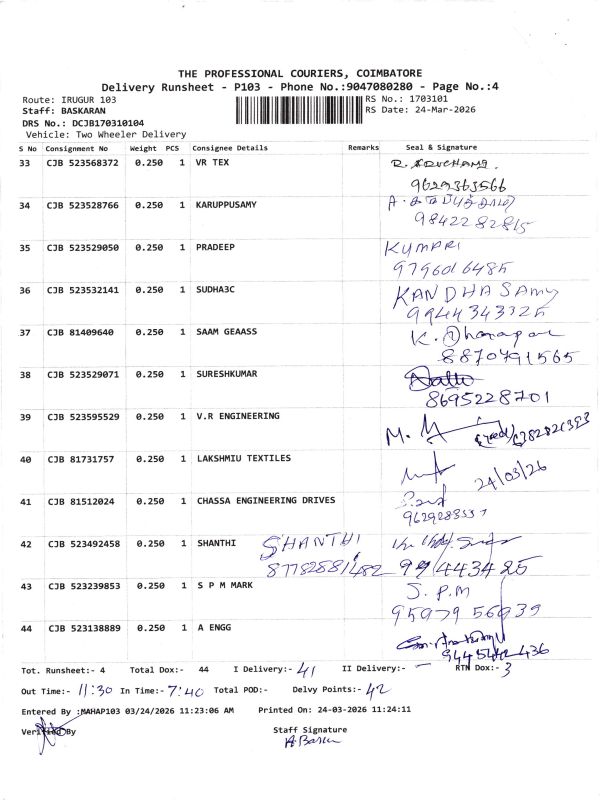 THE PROFESSIONAL COURIERS, COIMBATORE
Delivery Runsheet - P103 - Phone No.:9047080280 - Page No.:4
Route: IRUGUR 103 RS No.: 1703101
Staff: BASKARAN RS Date: 24-Mar-2026
DRS No.: DCJB170310104
Vehicle: Two Wheeler Delivery
S No Consignment No Weight PCS Consignee Details Remarks Seal & Signature
33 CJB 523568372 0.250 1 VR TEX
9629363566
34 CJB 523528766 0.250 1 KARUPPUSAMY
9842282815
35 CJB 523529050 0.250 1 PRADEEP KUMARI
9796016485
36 CJB 523532141 0.250 1 SUDHA3C KANDHASAMY
9944343325
37 CJB 81409640 0.250 1 SAAM GEAASS
8870791565
38 CJB 523529071 0.250 1 SURESHKUMAR
8695228701
39 CJB 523595529 0.250 1 V.R ENGINEERING
40 CJB 81731757 0.250 1 LAKSHMIU TEXTILES
24/03/26
41 CJB 81512024 0.250 1 CHASSA ENGINEERING DRIVES
42 CJB 523492458 0.250 1 SHANTHI SHANTHI
43 CJB 523239853 0.250 1 S P M MARK S.P.M
9597956939
44 CJB 523138889 0.250 1 A ENGG
Tot. Runsheet:- 4 Total Dox:- 44 I Delivery:- 41 II Delivery:- — RTN Dox:- 3
Out Time:- 11:30 In Time:- 7:40 Total POD:- Delvy Points:- 42
Entered By :MAHAP103 03/24/2026 11:23:06 AM Printed On: 24-03-2026 11:24:11
Verified By Staff Signature